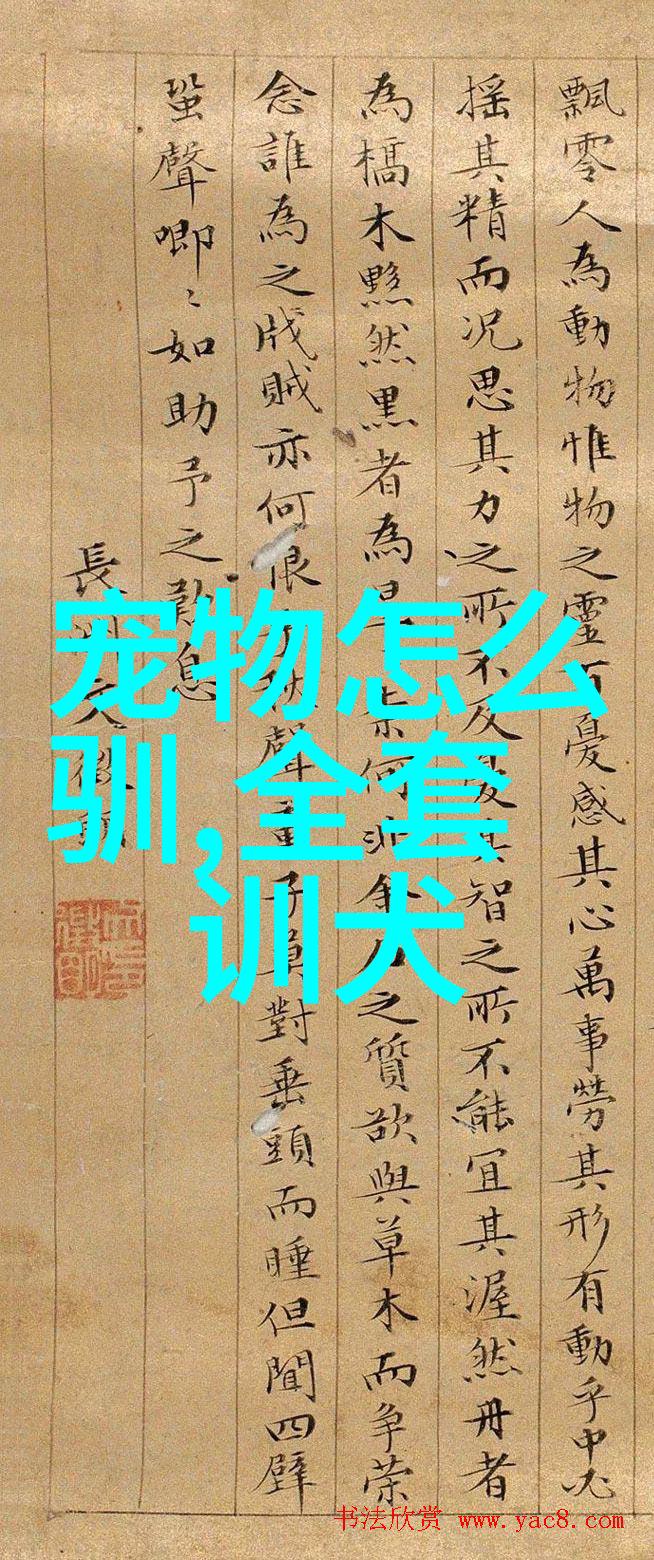 飄零人為動物惟物之靈百憂感其心萬事勞其形有動乎中必
搖其精而況思其力之所不及憂其智之所不能宜其渥然丹者
為槁木黟然黑者為星奈何非金之質欲與草木而爭荣
念誰為之戕賊亦何恨乎秋聲童子莫對垂頭而睡但聞四壁
蛩聲唧〻如助予之歎息
長洲文徵明
宠物怎么
驯,全套
训犬
书法欣赏 www.yac8.com